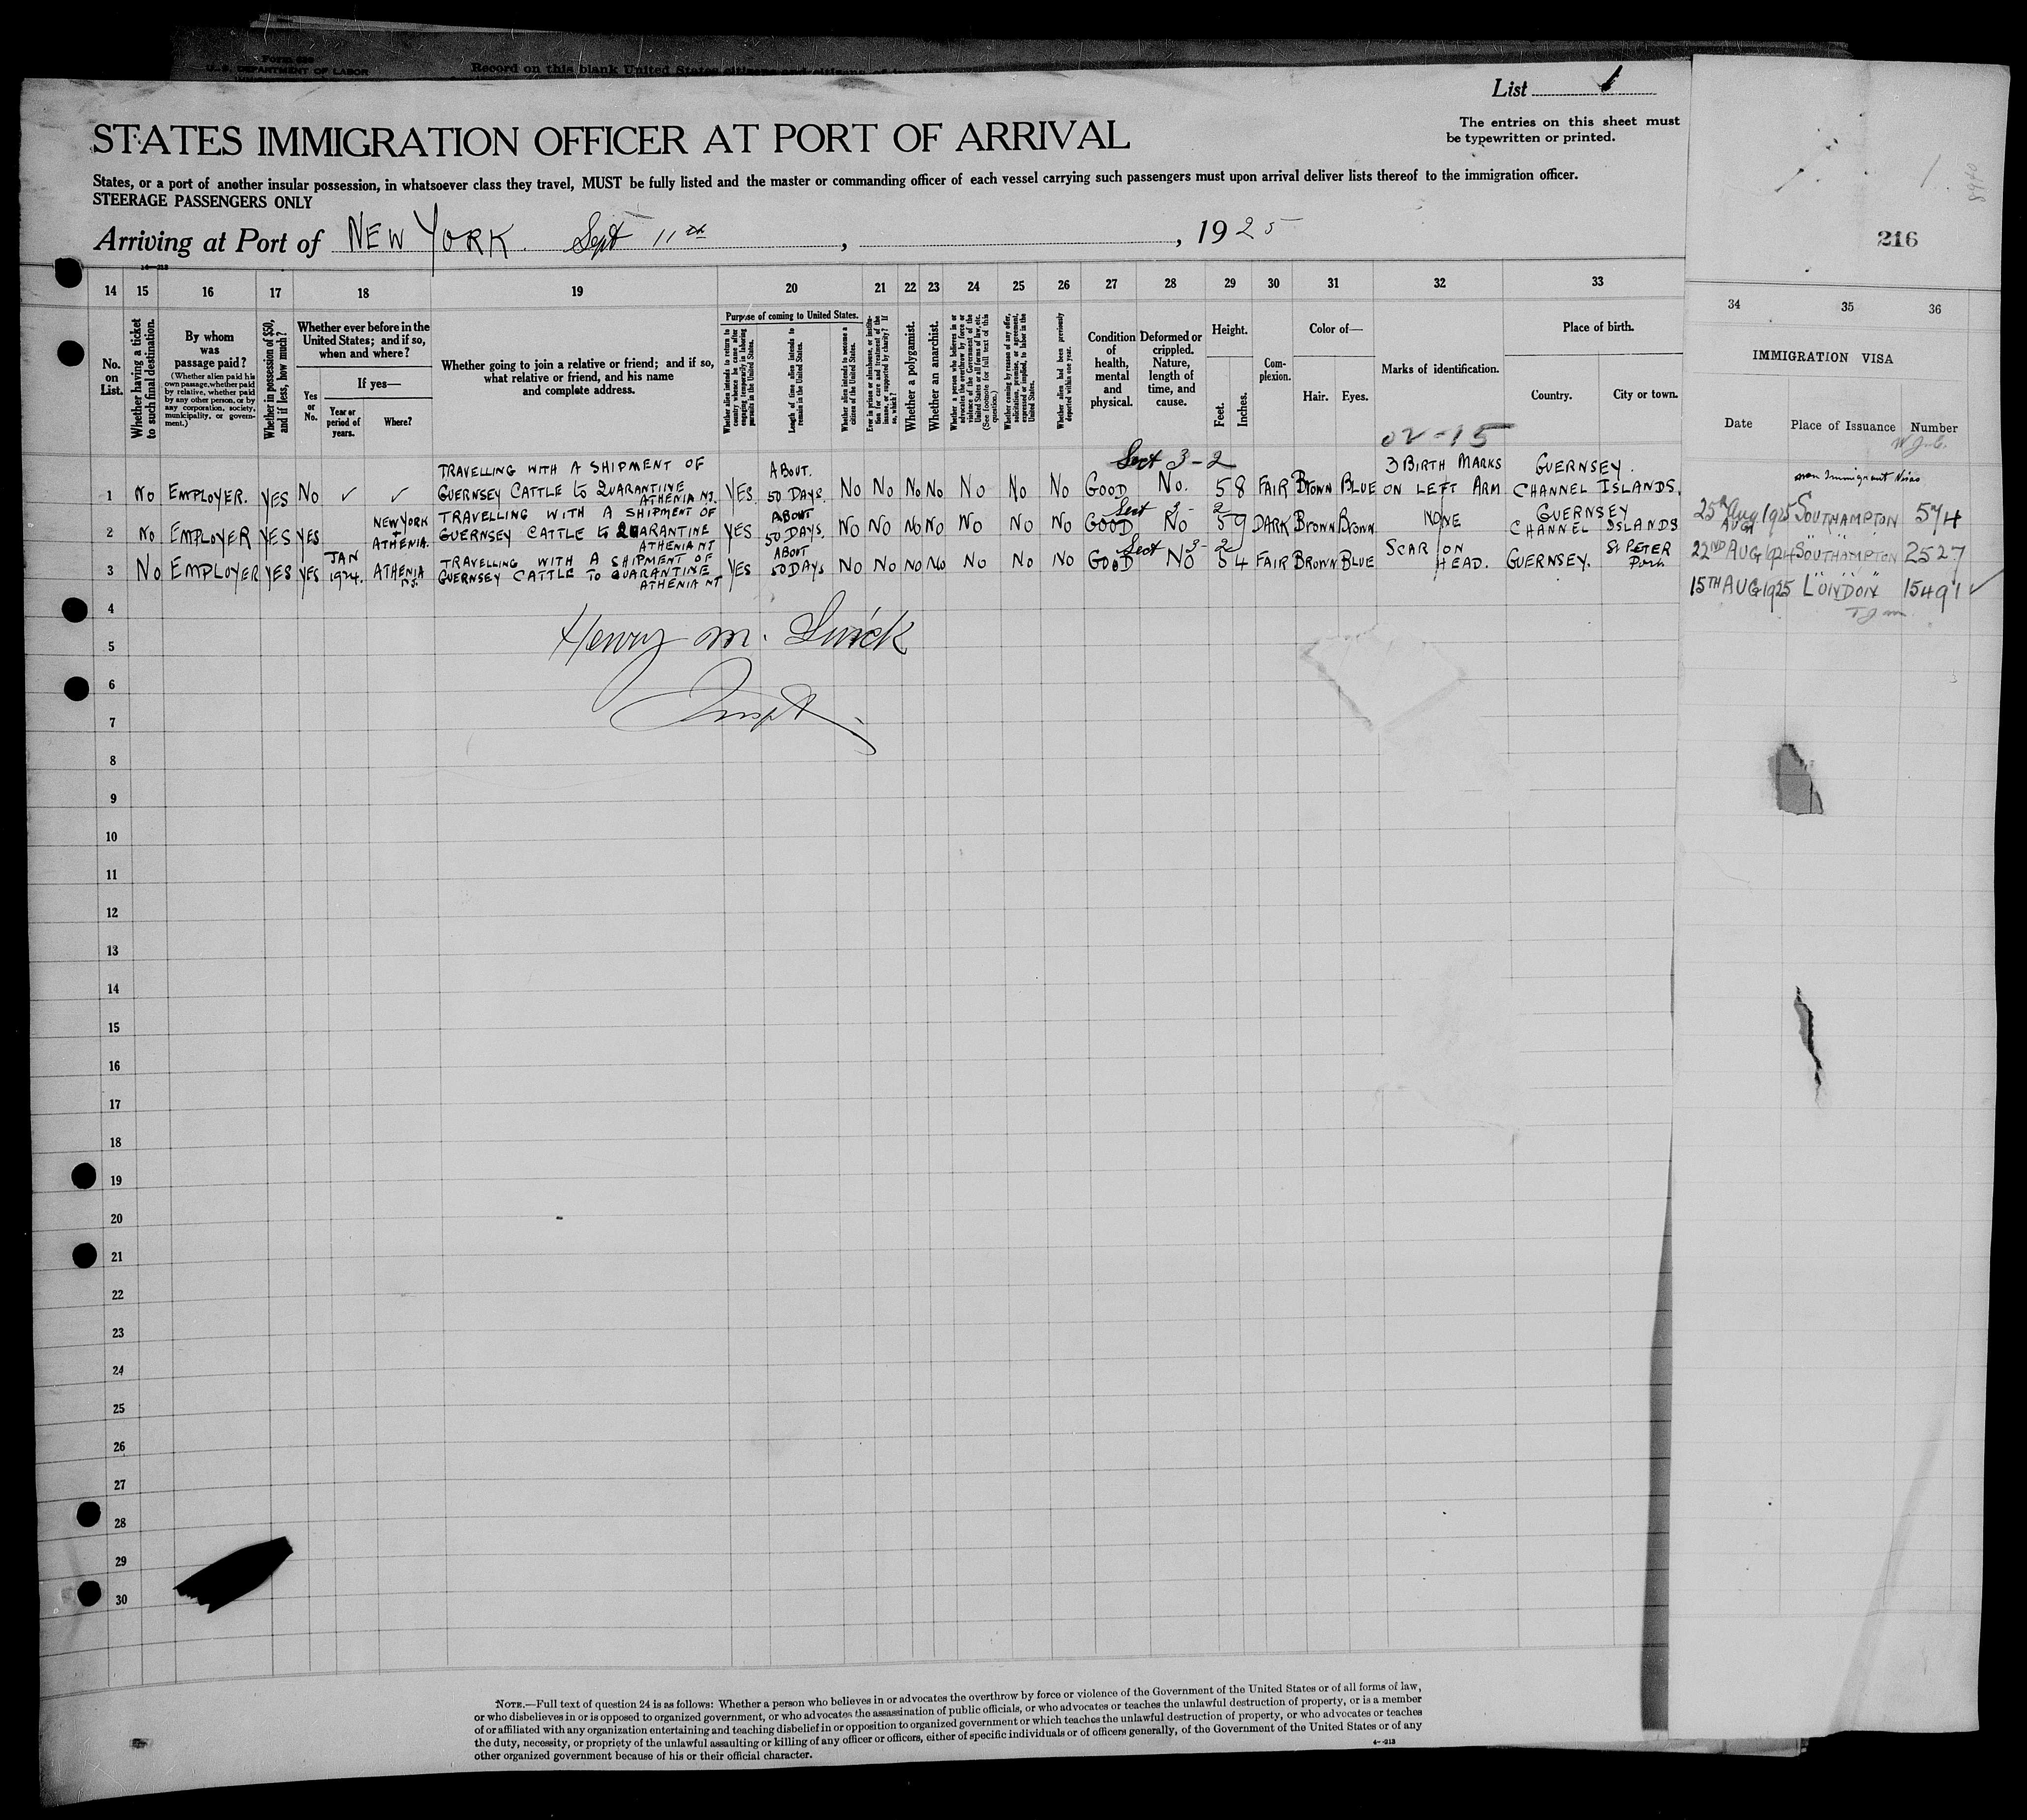 Form 630
U. S. DEPARTMENT OF LABOR
Record on this blank United States citizens and citizens of
List 1
The entries on this sheet must
be typewritten or printed.
STATES IMMIGRATION OFFICER AT PORT OF ARRIVAL
States, or a port of another insular possession, in whatsoever class they travel, MUST be fully listed and the master or commanding officer of each vessel carrying such passengers must upon arrival deliver lists thereof to the immigration officer.
STEERAGE PASSENGERS ONLY
Arriving at Port of NEW YORK. Sept 11th, 1925
216
14 15 16 17 18 19 20 21 22 23 24 25 26 27 28 29 30 31 32 33 34 35 36
No. on List.
Whether having a ticket to such final destination.
By whom was passage paid?
(Whether alien paid his own passage, whether paid by relative, whether paid by any other person, or by any corporation, society, municipality, or government.)
Whether in possession of $50, and if less, how much?
Whether ever before in the United States; and if so, when and where?
Yes or No.
If yes—
Year or period of years.
Where?
Whether going to join a relative or friend; and if so, what relative or friend, and his name and complete address.
Purpose of coming to United States.
Whether alien intends to return to country whence he came after engaging temporarily in laboring pursuits in the United States.
Length of time alien intends to remain in the United States.
Whether alien intends to become a citizen of the United States.
Ever in prison or almshouse, or institution for care and treatment of the insane, or supported by charity? If so, which?
Whether a polygamist.
Whether an anarchist.
Whether a person who believes in or advocates the overthrow by force or violence of the Government of the United States or all forms of law, etc. (See footnote for full text of this question.)
Whether coming by reason of any offer, solicitation, promise, or agreement, expressed or implied, to labor in the United States.
Whether alien had been previously deported within one year.
Condition of health, mental and physical.
Deformed or crippled. Nature, length of time, and cause.
Height.
Feet. Inches.
Complexion.
Color of—
Hair. Eyes.
Marks of identification.
Place of birth.
Country. City or town.
IMMIGRATION VISA
Date Place of Issuance Number
02-15
Sect 3-2
non Immigrant Visas
1 No EMPLOYER. YES No ✓ ✓ TRAVELLING WITH A SHIPMENT OF GUERNSEY CATTLE to QUARANTINE ATHENIA NJ. YES. ABOUT. 50 DAYS. No No No No No No No GOOD No. 5 8 FAIR BROWN BLUE 3 BIRTH MARKS ON LEFT ARM GUERNSEY. CHANNEL ISLANDS. 25th Aug 1925 SOUTHAMPTON 574
Sect 3-2
2 No EMPLOYER YES YES NEW YORK + ATHENIA. TRAVELLING WITH A SHIPMENT OF GUERNSEY CATTLE to QUARANTINE ATHENIA NJ YES ABOUT 50 DAYS. No No No No No No No GOOD No 5 9 DARK BROWN BROWN NONE GUERNSEY CHANNEL ISLANDS 22ND AUG 1924 SOUTHAMPTON 2527
Sect 3-2
3 No EMPLOYER YES YES JAN 1924. ATHENIA N.J. TRAVELLING WITH A SHIPMENT OF GUERNSEY CATTLE TO QUARANTINE ATHENIA NJ YES ABOUT 50 DAYS No No No No No No No GOOD No 5 4 FAIR BROWN BLUE SCAR ON HEAD. GUERNSEY. St PETER Port. 15TH AUG 1925 LONDON 15491 ✓
4
Henry M.
5
6
Inspt
7
8
9
10
11
12
13
14
15
16
17
18
19
20
21
22
23
24
25
26
27
28
29
30
NOTE.—Full text of question 24 is as follows: Whether a person who believes in or advocates the overthrow by force or violence of the Government of the United States or of all forms of law,
or who disbelieves in or is opposed to organized government, or who advocates the assassination of public officials, or who advocates or teaches the unlawful destruction of property, or is a member
of or affiliated with any organization entertaining and teaching disbelief in or opposition to organized government or which teaches the unlawful destruction of property, or who advocates or teaches
the duty, necessity, or propriety of the unlawful assaulting or killing of any officer or officers, either of specific individuals or of officers generally, of the Government of the United States or of any
other organized government because of his or their official character.